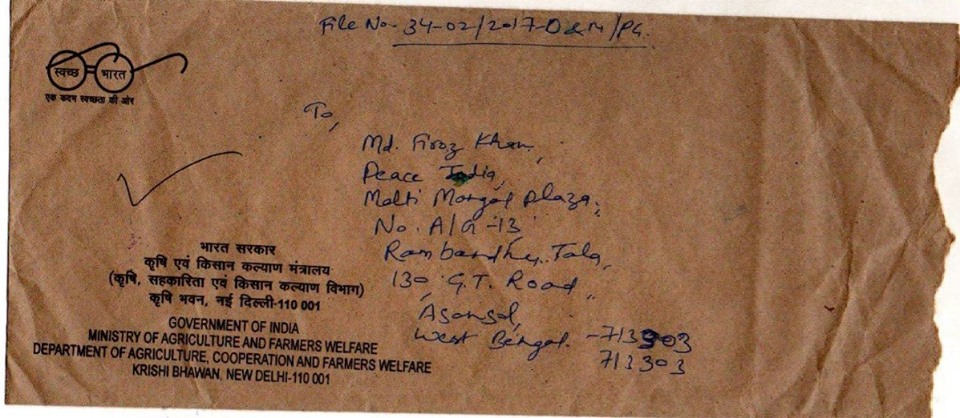 File No. 34-02/2017-D&M/PG.
स्वच्छ भारत
एक कदम स्वच्छता की ओर
To,
Md. Firoz Khan,
Peace India,
Malti Mongal Plaza,
No. A/G-13
Rambandhu Tala,
130 G.T. Road,
Asansol,
West Bengal. -713303
713303
भारत सरकार
कृषि एवं किसान कल्याण मंत्रालय
(कृषि, सहकारिता एवं किसान कल्याण विभाग)
कृषि भवन, नई दिल्ली-110 001
GOVERNMENT OF INDIA
MINISTRY OF AGRICULTURE AND FARMERS WELFARE
DEPARTMENT OF AGRICULTURE, COOPERATION AND FARMERS WELFARE
KRISHI BHAWAN, NEW DELHI-110 001